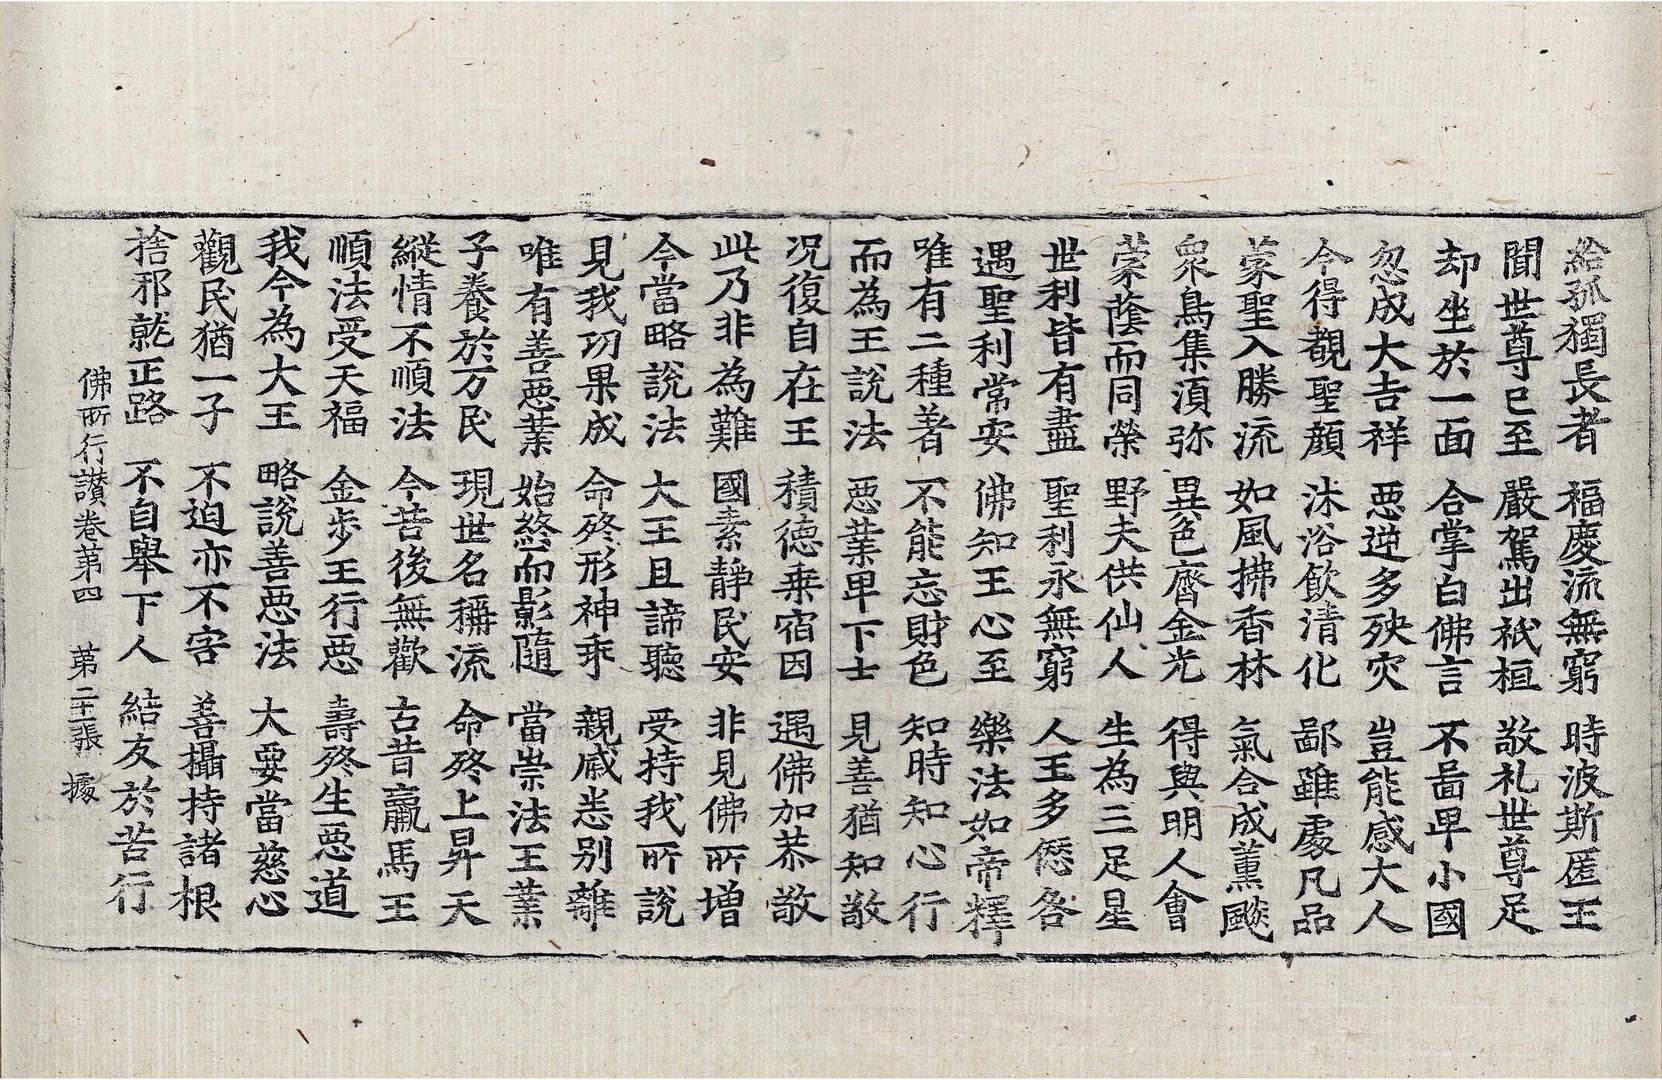 給孤獨長者 福慶流無窮 時波斯匿王
聞世尊已至 嚴駕出祇桓 敬礼世尊足
却坐於一面 合掌白佛言 不啚卑小國
忽成大吉祥 惡逆多殃灾 豈能感大人
今得覩聖顔 沐浴飲清化 鄙雖處凡品
蒙聖入勝流 如風拂香林 氣合成薰飈
衆鳥集湏弥 異色齊金光 得與明人會
蒙蔭而同榮 野夫供仙人 生為三足星
世利皆有盡 聖利永無窮 人王多愆咎
遇聖利常安 佛知王心至 樂法如帝釋
唯有二種著 不能忘財色 知時知心行
而為王說法 惡業卑下士 見善猶知敬
况復自在王 積德乗宿因 遇佛加恭敬
此乃非為難 國素靜民安 非見佛所增
今當略說法 大王且諦聽 受持我所說
見我㓛果成 命終形神乖 親戚悉别離
唯有善惡業 始終而影隨 當崇法王業
子養於万民 現世名稱流 命終上昇天
縱情不順法 今苦後無歡 古昔羸馬王
順法受天福 金步王行惡 壽終生惡道
我今為大王 略說善惡法 大要當慈心
觀民猶一子 不迫亦不害 善攝持諸根
捨邪就正路 不自舉下人 結友於苦行
佛所行讃卷第四 第二十一張 據